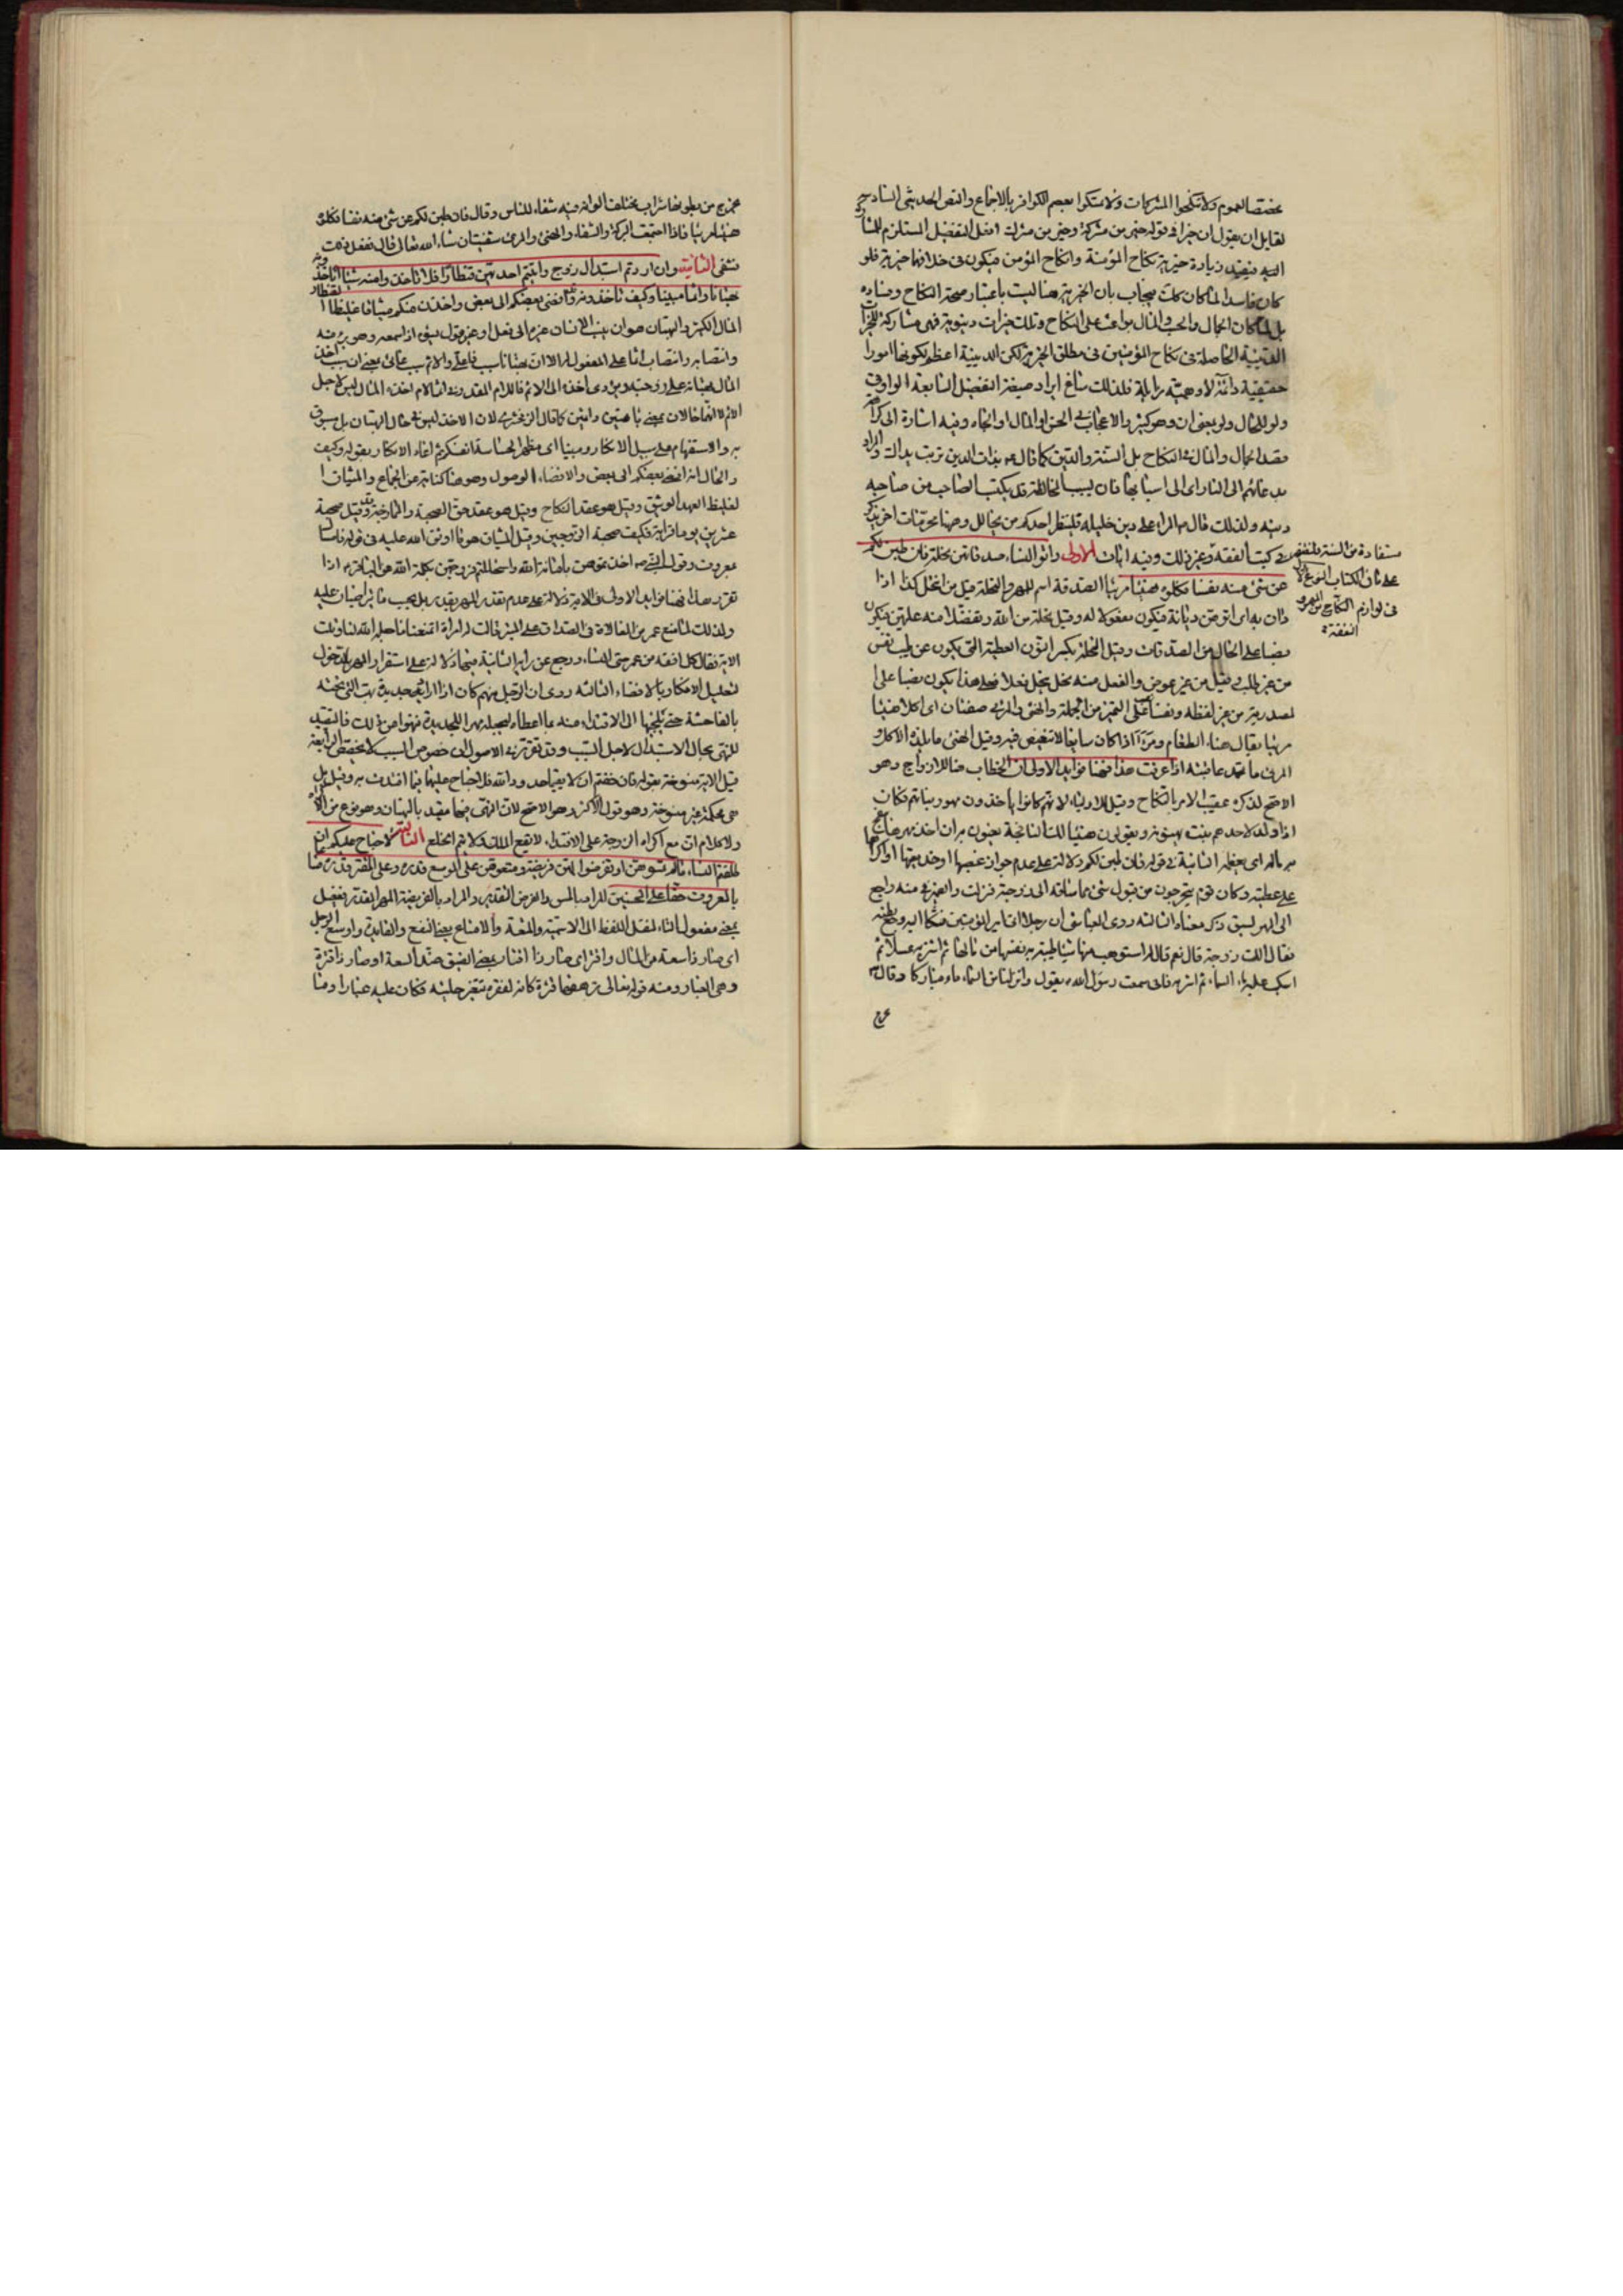 مخصصا لعموم ولا تنكحوا المشركات ولا تمسكوا بعصم الكوافر بالاجماع والنص الحديثي السادس
لقايل ان يقول ان خيرا في قوله خير من مشركة وخير من مشرك افعل التفضيل المستلزم للمشار
اليه فيفيد زيادة خيرية نكاح المؤمنة وانكاح المؤمن فيكون في خلافهما خيرية فلو
كان فاسدا لما كان كك فيجاب بان الخيرية هنا ليست باعتبار صحة النكاح وفساده
بل لما كان الجمال والحب والمال بواعث على النكاح وتلك خيرات دنيوية فهى مشاركة للخيرات
الدينية الحاصلة في نكاح المؤمنين في مطلق الخيرية لكن الدينية اعظم لكونها امورا
حقيقية دائمة لا وهمية زايلة فلذلك ساغ ايراد صيغة التفضيل السابعة الواو في
ولو للحال ولو بمعنى ان وهو كثير والاعجاب في الحسن او المال او الجاه وفيه اشارة الى كراهة
قصد الجمال والمال في النكاح بل الستر والدين كما قال بذات الدين تربت يداك والمراد
بدعائهم الى النار اى الى اسبابها فان بسبب المخالطة قد يكتسب الصاحب من صاحبه
دينه ولذلك قال المرء على دين خليله فلينظر احدكم من يخالل وهنا محرمات اخر يذكر
في كتب الفقه وغير ذلك وفيه ايات الاولى واتوا النساء صدقاتهن نحلة فان طبن لكم
مستفادة من السنة
على شان الكتاب النوع
في لوازم النكاح من المهر و
النفقة
عن شئ منه نفسا فكلوه هنيئا مريئا الصدقة اسم للمهر والنحلة قيل من انتحل كذا اذا
دان به اى اتوهن ديانة فيكون مفعولا له وقيل نحلة من الله وتفضلا منه عليهن فيكون
نصبا على الحال من الصدقات وقيل النحلة بكسر النون العطية التى يكون عن طيب نفس
من غير طلب وقيل من غير عوض والفعل منه نحل ينحل نحلا فعلى هذا يكون نصبا على
المصدرية من غير لفظه ونفسا على التميز من الجملة والهنئ والمرئ صفتان اى اكلا هنيئا
مريئا يقال هناء الطعام ومرء اذا كان سايغا لا تنغيص فيه وقيل الهنئ ما يلذه الاكل و
المرئ ما يحمد عاقبته اذا عرفت هذا فهنا فوايد الاولى ان الخطاب هنا للازواج وهو
الاصح لذكره عقيب الامر بالنكاح وقيل للاولياء لانهم كانوا ياخذون مهور بناتهم فكان
اذا ولد لاحدهم بنت يهنونه ويقولون هنيئا لك النافجة يعنون به ان اخذ مهرها
به ماله اى يعظمه الثانية في قوله فان طبن لكم دلالة على عدم جواز غصبها او خديعتها او اكراهها
على عطيته وكان قوم يتحرجون من قبول شئ مما ساقه الى زوجته فنزلت والضمير في منه راجع
الى المهر لسبق ذكر معناه الثالثة روى العياشى ان رجلا اتى امير المؤمنين فشكا اليه وجع بطنه
فقال الك زوجة قال نعم قال استوهب منها شيئا طيبة به نفسها من مالها ثم اشتر به عسلا ثم
اسكب عليه ماء السماء ثم اشربه فانى سمعت رسول الله يقول وانزلنا من السماء ماء مباركا وقال
يخرج
يخرج من بطونها شراب مختلف الوانه فيه شفاء للناس وقال فان طبن لكم عن شئ منه نفسا فكلوه
هنيئا مريئا فاذا اجتمعت البركة والشفاء والهنئ والمرئ شفيت ان شاء الله تعالى قال ففعل ذلك
فشفى الثانية وان اردتم استبدال زوج مكان زوج واتيتم احديهن قنطارا فلا تاخذوا منه شيئا اتاخذونه
بهتانا واثما مبينا وكيف تاخذونه وقد افضى بعضكم الى بعض واخذن منكم ميثاقا غليظا القنطار
المال الكثير والبهتان هو ان
وانتصابه وانتصاب اثما على المفعول له الا ان بهتانا سبب فاعلى والاثم سبب غائى يعنى ان سبب اخذ
المال بهتانه على زوجته
الاثم
به والاستفهام على سبيل الانكار ومبينا اى مظهر
والحال انه افضى بعضكم الى بعض والافضاء الوصول وهو هنا كناية عن الجماع والميثاق ا
لغليظ العهد الوثيق وقيل هو عقد النكاح وقيل هو عقد حق الصحبة والممازجة وقد قيل صحبة
عشرين يوما قرابة فكيف صحبة الزوجين وقيل الميثاق هو ما اوثق الله عليه في قوله فامساك
بمعروف وقول النبى اخذتموهن بامانة الله واستحللتم فروجهن بكلمة الله
تقرر هذا فهنا فوايد الاولى في الاية دلالة على عدم تقدير المهر بقدر بل يجب ما تراضيا عليه
ولذلك لما منع عمر من المغالاة في الصداق على المنبر قالت له امراة اتمنعنا ما احله الله لنا وتلت
الاية فقال كل افقه من عمر حتى النساء ورجع عن رايه الثانية فيها دلالة على استقرار المهر بالدخول
لتعليل الانكار بالافضاء الثالثة روى ان الرجل منهم كان اذا اراد جديدة بهت التى تحته
بالفاحشة حتى يلجئها الى الافتداء منه بما اعطاه ليجعله مهرا للجديدة فنهوا عن ذلك فالتقييد
للنهى بحال الاستبدال لاجل السبب وقد تقرر في الاصول ان خصوص السبب لا يخصص الرابعة
قيل الاية منسوخة بقوله فان خفتم ان لا يقيما حدود الله فلا جناح عليهما فيما افتدت به وقيل بل
هى محكمة غير منسوخة وهو قول الاكثر وهو الاصح لان النهى فيها مقيد بالبهتان وهو نوع من الاكراه
ولا كلام ان مع اكراه الزوجة على الافتداء لا يقع الطلاق ولا يتم الخلع الثالثة لا جناح عليكم ان
طلقتم النساء ما لم تمسوهن او تفرضوا لهن فريضة ومتعوهن على الموسع قدره وعلى المقتر قدره متاعا
بالمعروف حقا على المحسنين المراد بالمس والفرض التقدير والمراد بالفريضة المهر المقدر بفعيل
بمعنى مفعول التاء لنقل اللفظ الى الاسمية والمتعة والامتاع بمعنى النفع والفايدة واوسع الرجل
اى صار ذا سعة من المال واقتر اى صار ذا اقتار بمعنى الضيق ضد السعة او صار ذا قترة
وهى الغبار ومنه قوله تعالى ترهقها قترة كانه لفقره تتغير حليته فكان عليه غبارا ومتاعا